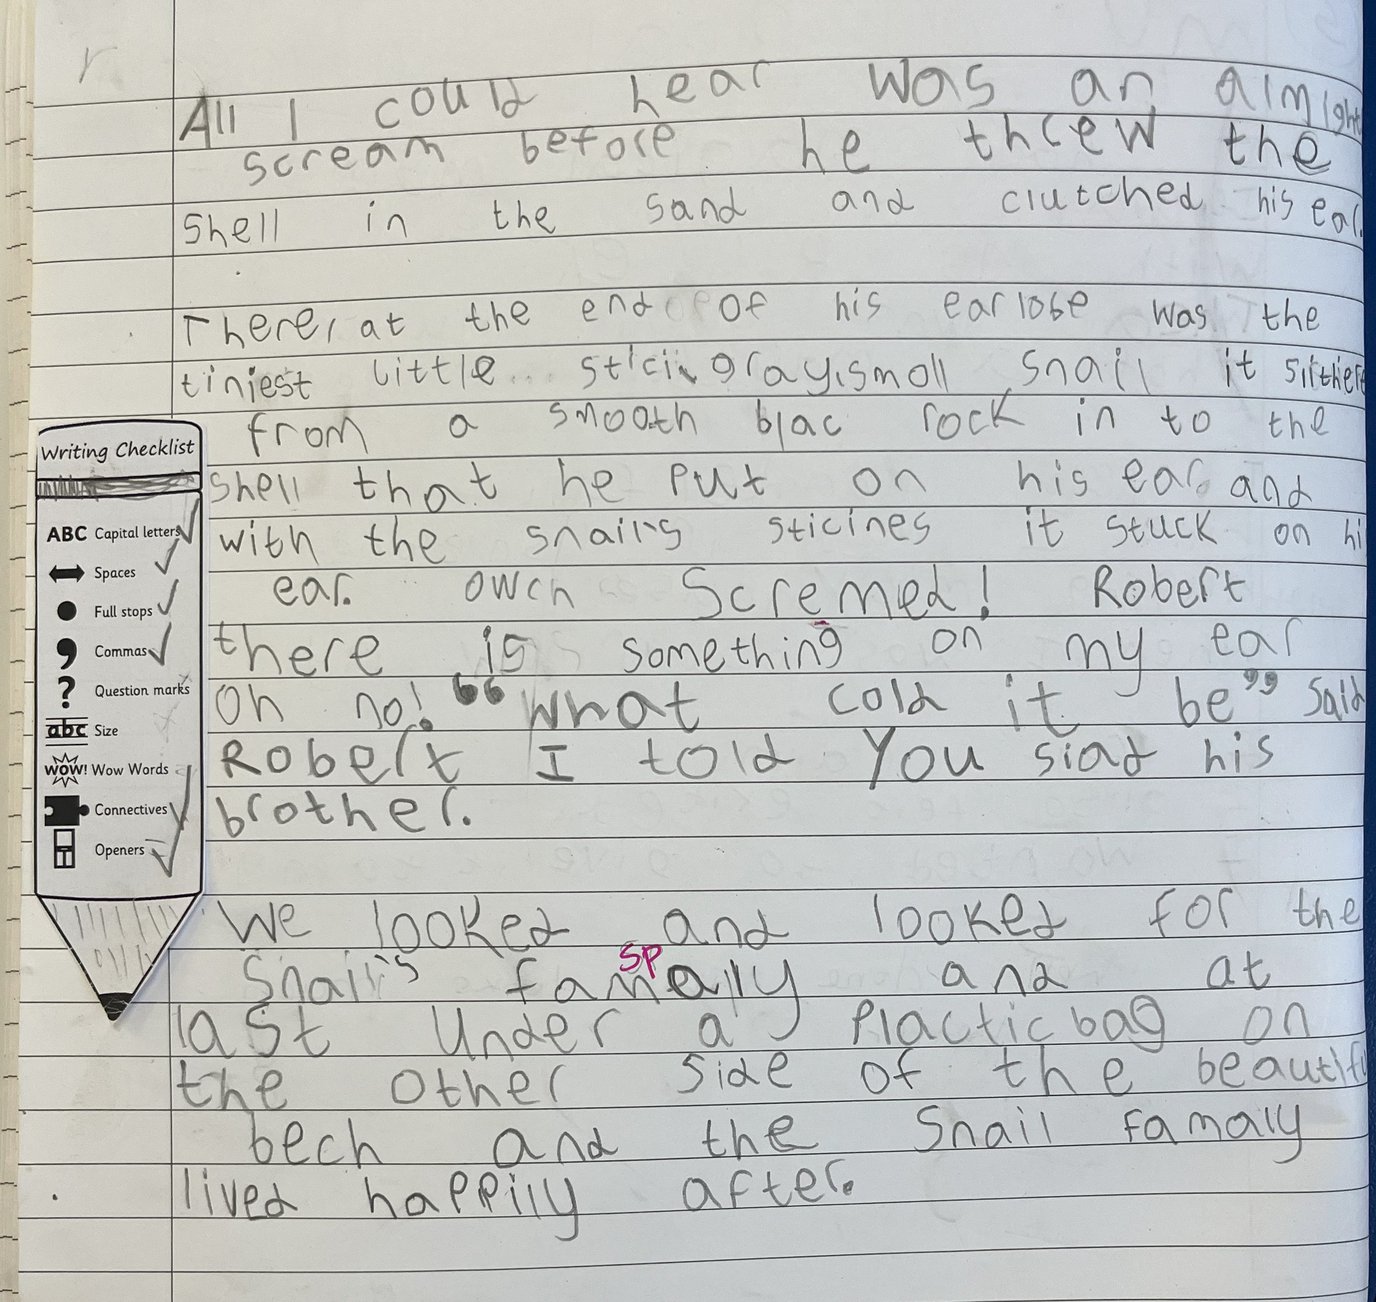 r
All I could hear was an almight
scream before he threw the
shell in the sand and clutched his ear.
There, at the end of his earlobe was the
tiniest little sticii, gray, smoll snail it slithere
from a smooth blac rock in to the
shell that he put on his ear and
with the snail's sticines it stuck on hi
ear. owch Scremed! Robert
there is something on my ear
oh no! “what cold it be” said
Robert I told You siad his
brother.
We looked and looked for the
sp
Snail's famally and at
last Under a Placticbag on
the other side of the beautif
bech and the Snail famaly
lived happily after.
Writing Checklist
ABC Capital letters
Spaces
Full stops
, Commas
? Question marks
abc Size
WOW! Wow Words
Connectives
Openers